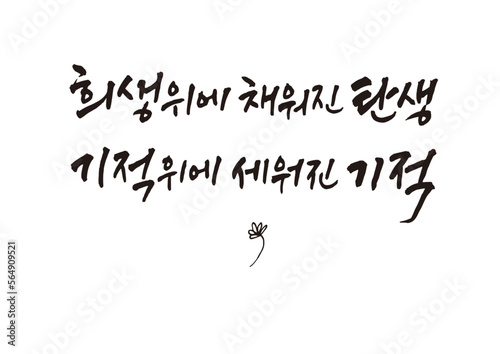 희생위에 채워진 탄생
기적위에 세워진 기적
Adobe Stock | #564909521